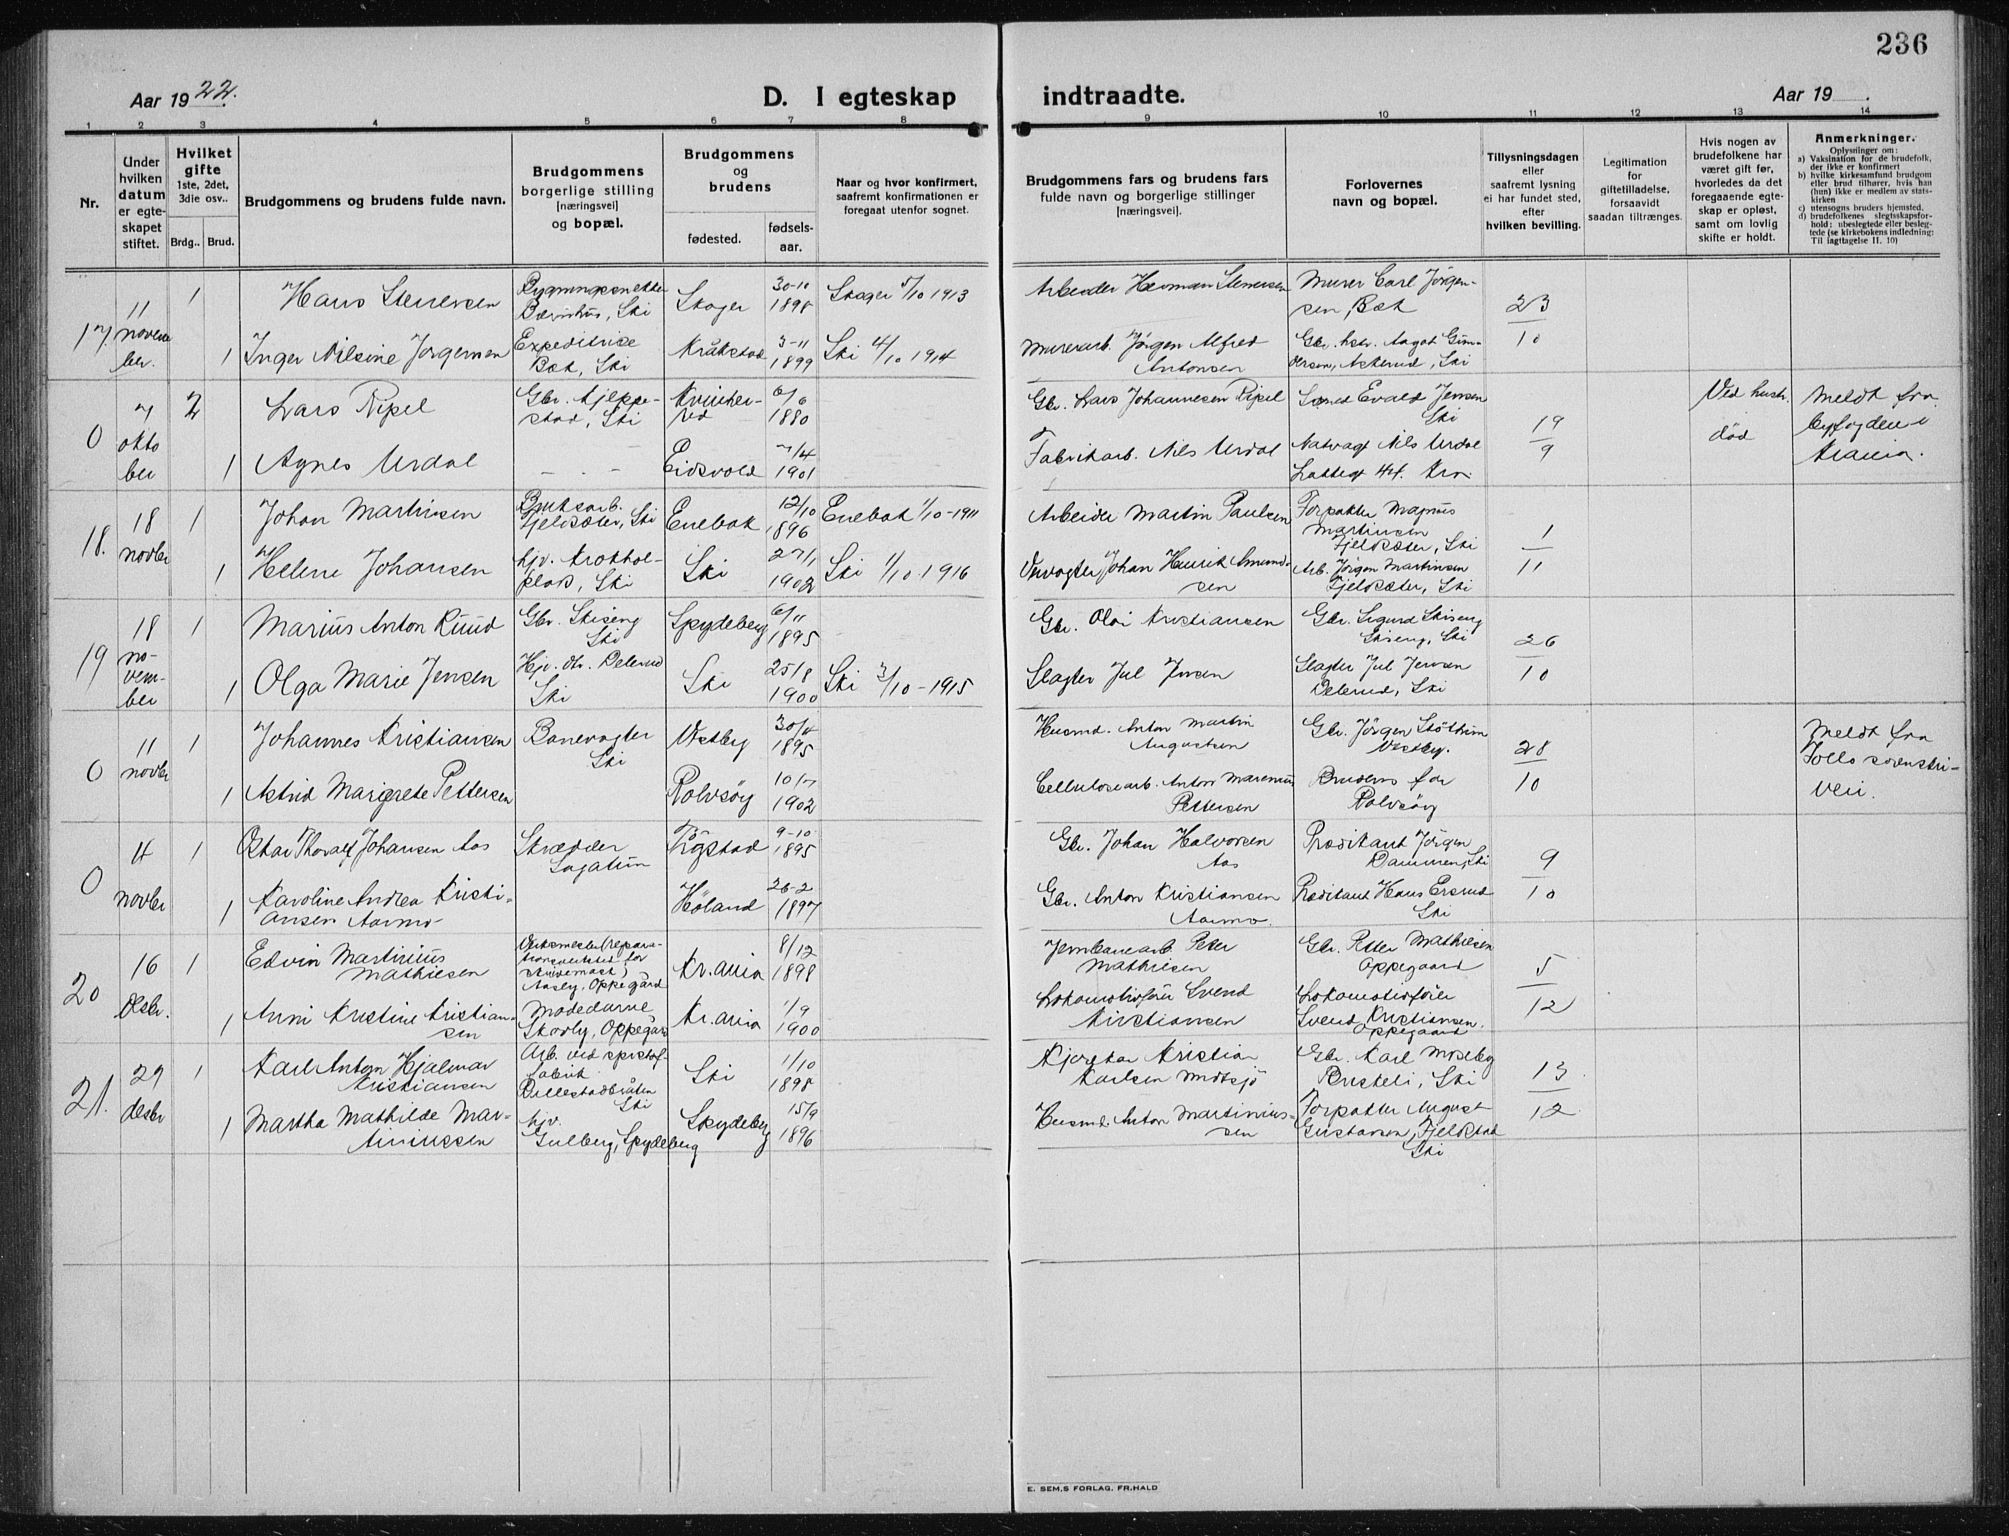 236
Aar 1922.
D. I egteskap
indtraadte.
Aar 19 .
1 2 3 4 5 6 7 8 9 10 11 12 13 14
Nr.
Under
hvilken
datum
er egte-
skapet
stiftet.
Hvilket
gifte
1ste, 2det,
3die osv..
Brdg.. Brud.
Brudgommens og brudens fulde navn.
Brudgommens
borgerlige stilling
[næringsvei]
og bopæl.
Brudgommens
og
brudens
fødested.
fødsels-
aar.
Naar og hvor konfirmert,
saafremt konfirmationen er
foregaat utenfor sognet.
Brudgommens fars og brudens fars
fulde navn og borgerlige stillinger
[næringsvei].
Forlovernes
navn og bopæl.
Tillysningsdagen
eller
saafremt lysning
ei har fundet sted,
efter
hvilken bevilling.
Legitimation
for
giftetilladelse,
forsaavidt
saadan tiltrænges.
Hvis nogen av
brudefolkene har
været gift før,
hvorledes da det
foregaaende egte-
skap er opløst,
samt om lovlig
skifte er holdt.
Anmerkninger.
Oplysninger om:
a) Vaksination for de brudefolk,
der ikke er konfirmert
b) hvilke kirkesamfund brudgom
eller brud tilhører, hvis han
(hun) ikke er medlem av stats-
kirken
c) utensogns bruders hjemsted.
d) brudefolkenes slegtsskapsfor-
hold: ubeslegtede eller besleg-
tede (se kirkebokens indledning:
Til iagttagelse II. 10)
17
11
novem
ber.
1
Hans Stenersen
Bærishus, Ski
Skoger
30-10
1898
Skoger 5/10 1913
Arbeider Herman Stenersen
Murer Carl Jörgen-
sen, Bæk
23
10
1
Inger Nilsine Jörgensen
Expeditrise
Bæk, Ski
Kråkstad
3-11
1899
Ski 4/10 1914
Murerarb. Jörgen Alfred
Antonsen
Gbr. hstr. Aagot Gun-
dersen, Askerud, Ski
0
7
okto
ber
2
Lars Ripel
Gbr. Kjeppe-
stad, Ski
Kvinher-
red
6/6
1880
Gbr. Lars Johannesen Ripel
Smed Evald Jensen
Ski
19
9
Ved hustr.
död
Meldt fra
byfogden i
Kr.ania.
1
Agnes Urdal
- - -
Eidsvold
7/4
1901
Fabrikarb. Nils Urdal
Natvagt Nils Urdal
44. Kra.
18.
18
novbr
1
Johan Martinsen
Bruksarb.
Fjeldsæter, Ski
Enebak
12/10
1896
Enebak 1/10-1911
Arbeider Martin Paulsen
Forpakter Magnus
Martinsen
Fjeldsæter, Ski
1
11
1
Helene Johansen
hjv. Krokhol-
plas, Ski
Ski
27/1
1902
Ski 1/10.1916
Johan Henrik Amund-
sen
Arb. Jörgen Martinsen
Fjeldsæter, Ski
19
18
no-
vem-
ber
1
Marius Anton Ruud
Gbr. Skiseng
Ski
Spydeberg
6/11
1895
Gbr. Olai Kristiansen
Gbr. Sigurd Skiseng
Skiseng, Ski
26
10
1
Olga Marie Jensen
Hjv. dtr. Delerud
Ski
Ski
25/8
1900
Ski 3/10-1915
Slagter Jul Jensen
Slagter Jul Jensen
Delerud, Ski
0
11
novbr
1
Johannes Kristiansen
Banevogter
Ski
Vestby
1895
Husmd. Anton Martin
Augustsen
Gbr. Jörgen Stöttum
Vestby.
28
10
Meldt fra
Follo sorenskri-
veri.
1
Astrid Margrete Pettersen
Rolvsöy
10/7
1902
Cellulosearb. Anton Marenius
Pettersen
Brudens far
Rolvsöy
0
4
novbr
1
Oskar Thoralf Johansen Aas
Skrædder
Sagatun
Trögstad
9-10
1895
Gbr. Johan Halvorsen
Aas
Prædikant Jörgen
Dammen, Ski
9
10
1
Karoline Andrea Kristi-
ansen Aarmo
Höland
26-2
1897
Gbr. Anton Kristiansen
Aarmo.
Prædikant Hans Ersrud
Ski
20
16
desbr.
1
Edvin Martinius
Mathiesen
Verksmester (repara-
tionsverksted for
skrivemask)
Aasly, Oppegård
Kr.ania
8/12
1898
Jernbanearb. Peter
Mathiesen
Gbr. Petter Mathiesen
Oppegaard
5
12
1
Anni Kristine Kristian-
sen
Modedame
Skovly, Oppegård
Kr.ania
1/9
1900
Lokomotivförer Svend
Kristiansen
Lokomotivförer
Svend Kristiansen.
Oppegaard
21.
29
desbr
1
Karl Anton Hjalmar
Kristiansen
Arb. ved sprstof-
fabrik
Ski
Ski
1/10
1898
Kjörekar Kristian
Karlsen Midtsjö
Gbr. Karl Moseby
Ski
13
12
1
Martha Mathilde Mar-
tiniussen
hjv.
Gulberg, Spydeberg
Spydeberg
15/9
1896
Husmd. Anton Martinius-
sen
Forpakter August
Gustavsen, Fjeldstad
Ski
E. SEM,S FORLAG, FR.HALD